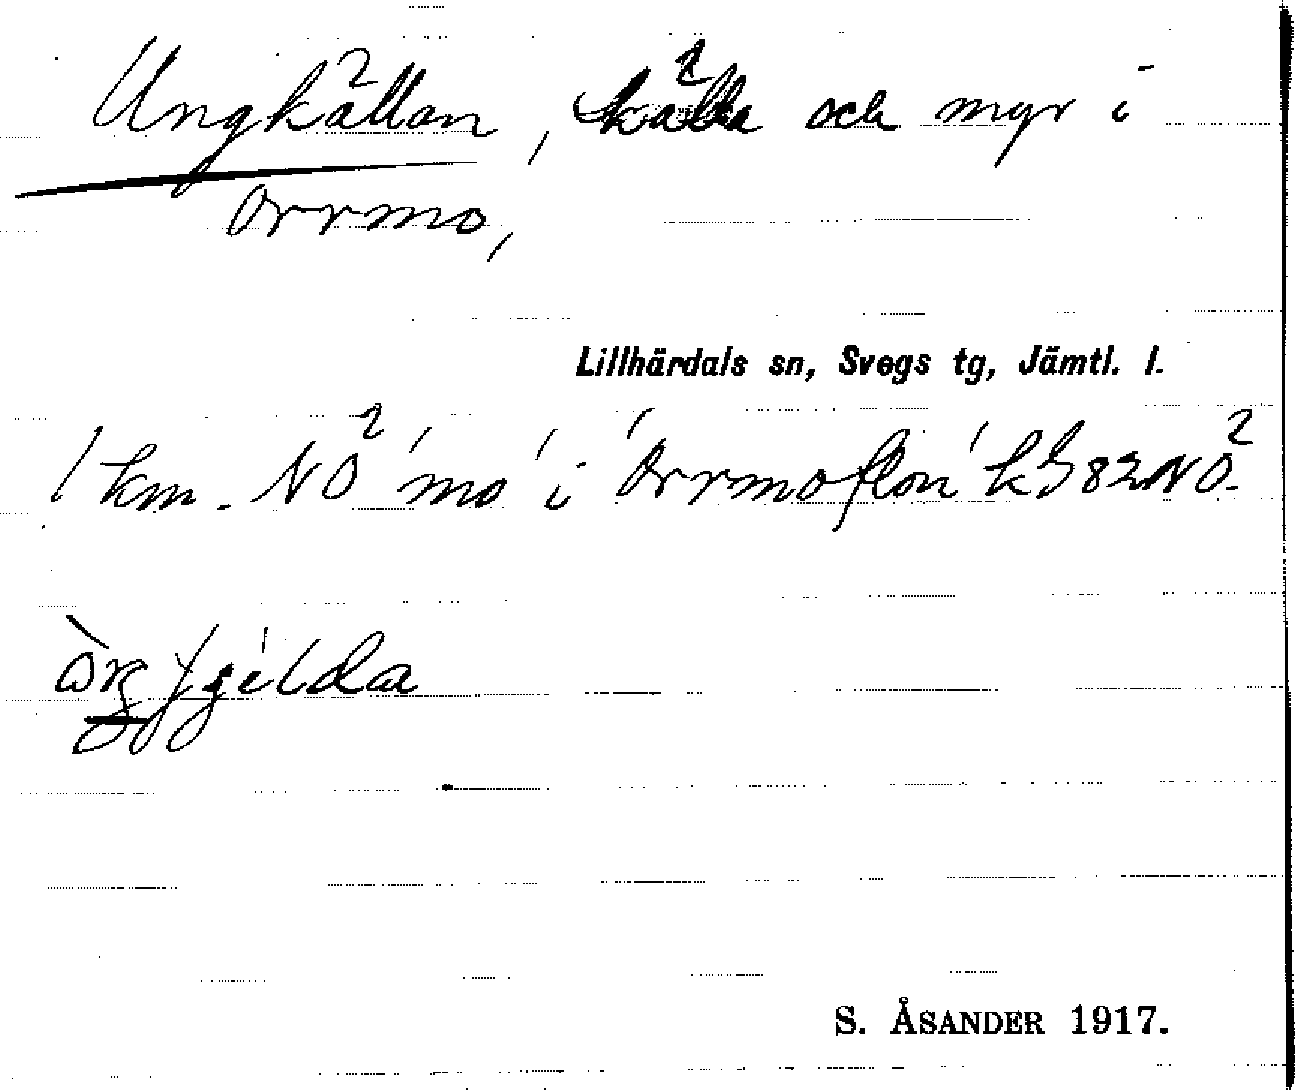 Ungkällan, källa och myr i
Orrmo,
Lillhärdals sn, Svegs tg, Jämtl. l.
1 km. NÖ 'mo' i 'Orrmoflon' kS 82 NÖ.
S. ÅSANDER 1917.